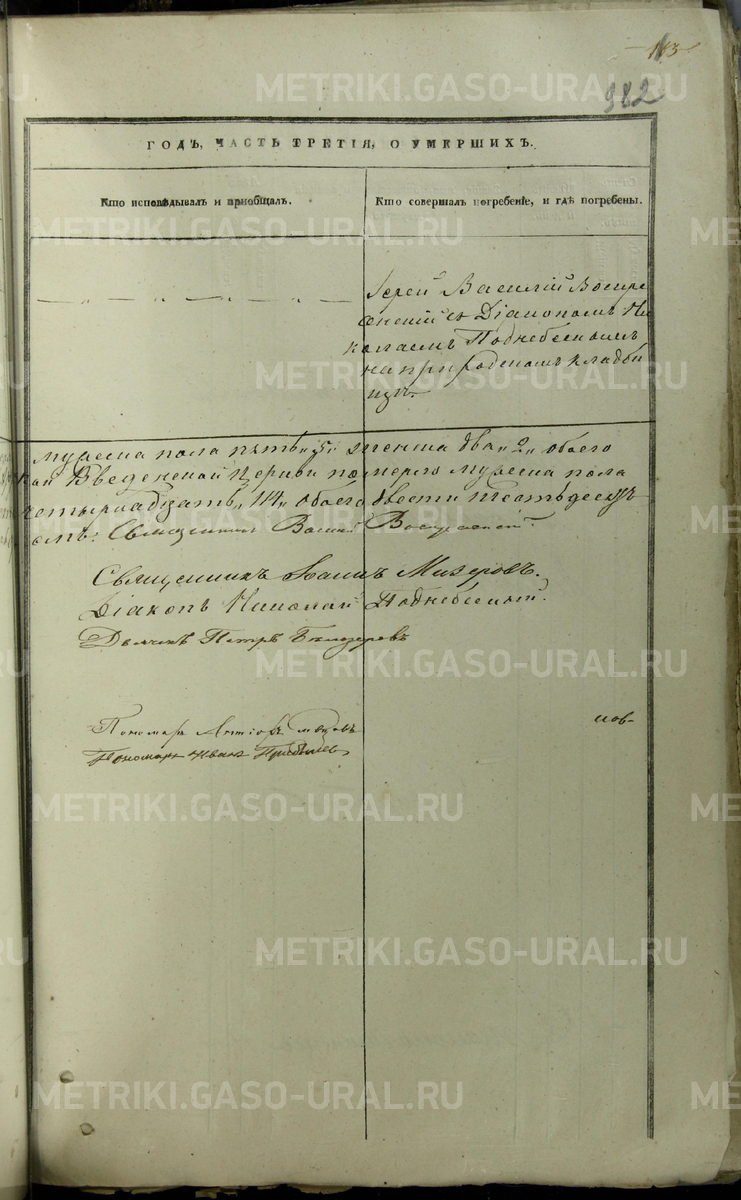 113
982
ГОДЪ, ЧАСТЬ ТРЕТІЯ, О УМЕРШИХЪ.
Кто исповѣдывалъ и приобщалъ.
Кто совершалъ погребеніе, и гдѣ погребены.
Іерей Василій Воскре
сенскій съ Діакономъ Ни
колаемъ Поднебеснымъ
на приходскомъ кладби
щѣ.
мужеска пола пять "5" женска два "2" обоего
кой Введенской Церкви померло мужеска пола
четырнадцать "114" обоего двести
омъ: Священникъ Василій Воскресенскій
Священникъ Іоаннъ Мизеровъ.
Діаконъ Николай Поднебесный.
Дьячекъ Петръ Бѣлозеровъ
Пономарь
Пономарь Иванъ
нов-
METRIKI.GASO-URAL.RU